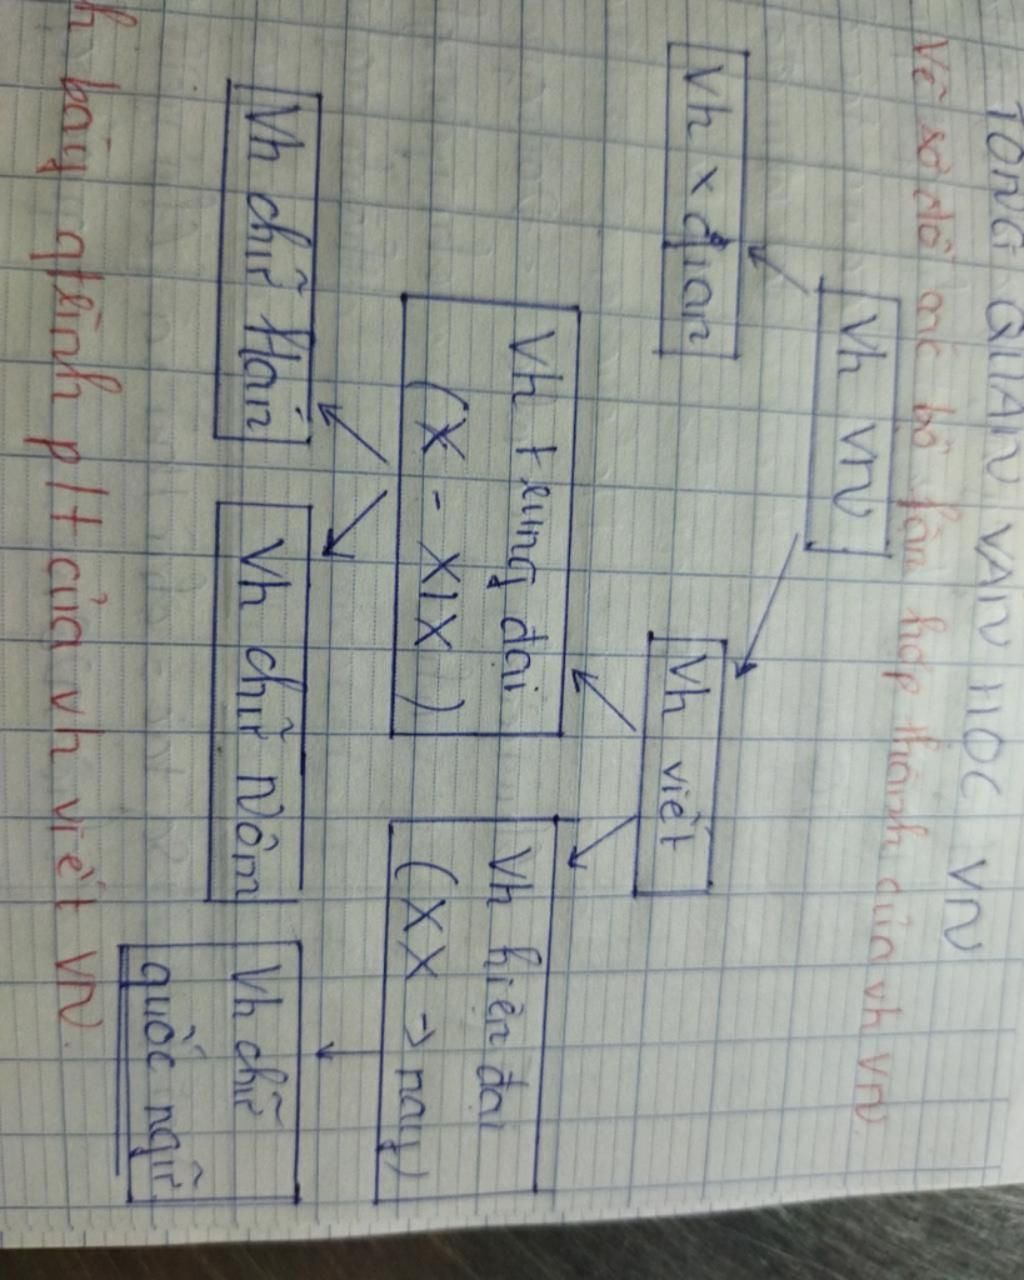 TỔNG QUAN VĂN HỌC VN
Vẽ sơ đồ các bộ fận hợp thành của vh VN
Vh VN
Vh x đgian
Vh viết
Vh trung đại
(X - XIX)
Vh hiện đại
(XX → nay)
Vh chữ Hán
Vh chữ Nôm
Vh chữ
quốc ngữ
h bày qtrình pH của vh viết VN.